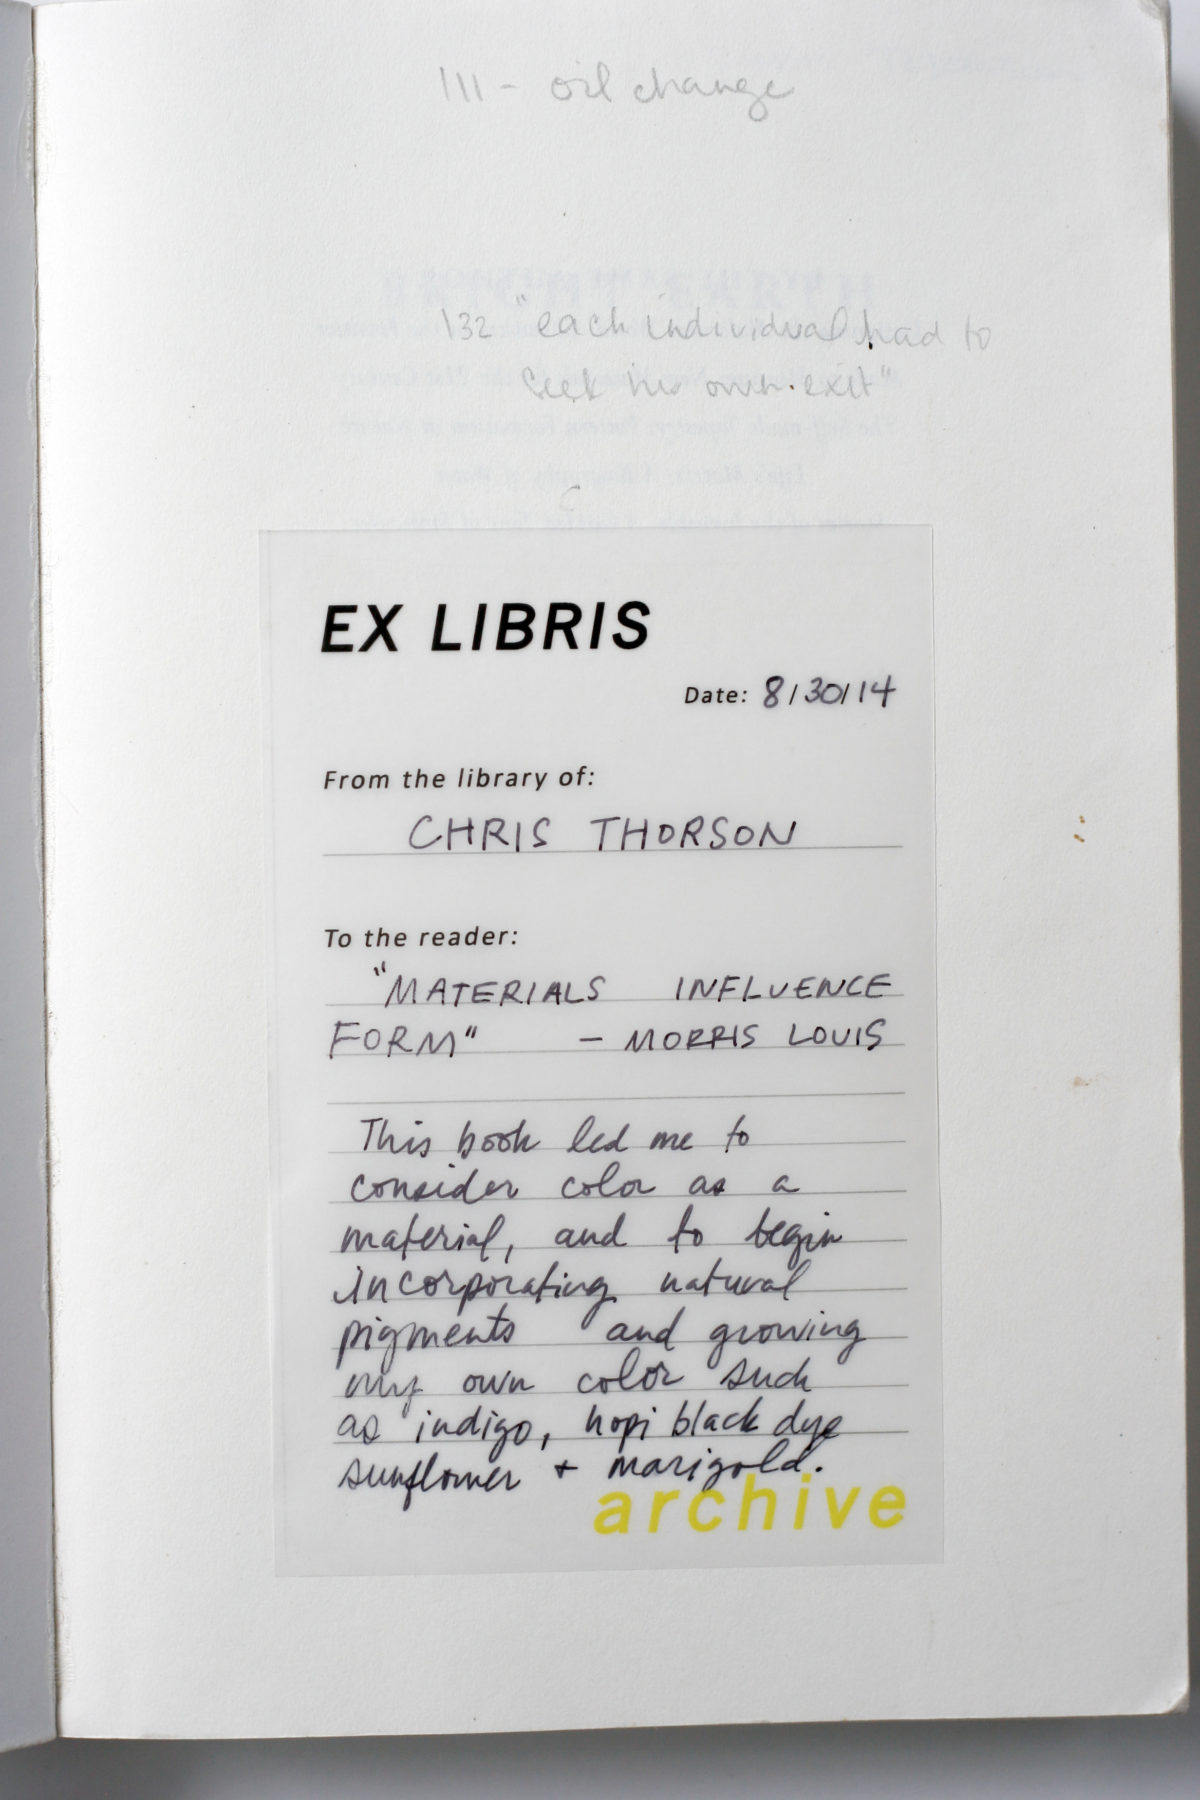 111 - oil change
132 "each individual had to
seek his own exit"
EX LIBRIS
Date: 8/30/14
From the library of:
CHRIS THORSON
To the reader:
"MATERIALS INFLUENCE
FORM" - MORRIS LOUIS
This book led me to
consider color as a
material, and to begin
incorporating natural
pigments and growing
my own color such
as indigo, hopi black dye
sunflower + marigold.
archive